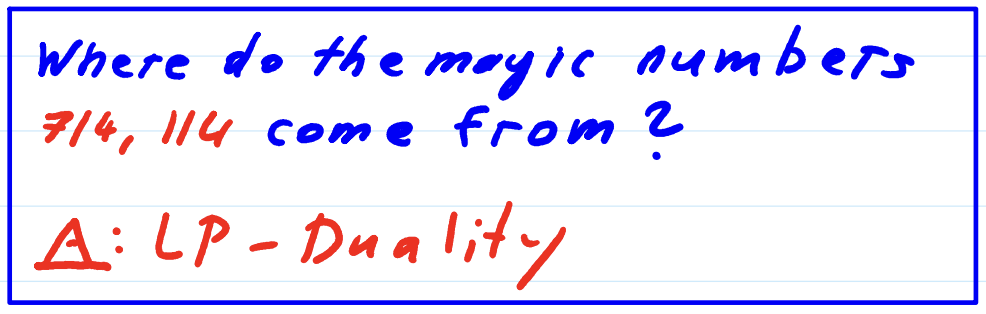 Where do the magic numbers
7/4, 1/4 come from?
A: LP-Duality